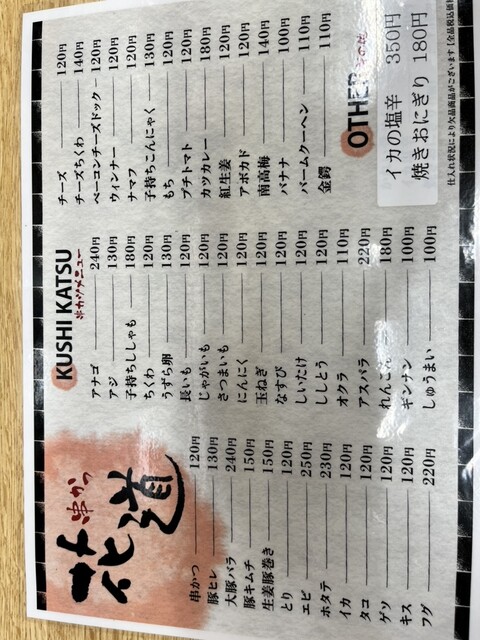 串かつ
花道
串かつ 120円
豚ヒレ 130円
大豚バラ 240円
豚キムチ 150円
生姜豚巻き 150円
とり 120円
エビ 250円
ホタテ 230円
イカ 120円
タコ 120円
ゲソ 120円
キス 120円
フグ 220円
KUSHI KATSU
串カツメニュー
アナゴ 240円
アジ 130円
子持ちししゃも 180円
ちくわ 120円
うずら卵 130円
長いも 120円
じゃがいも 120円
さつまいも 120円
にんにく 120円
玉ねぎ 120円
なすび 120円
しいたけ 120円
ししとう 120円
オクラ 110円
アスパラ 220円
れんこん 180円
ギンナン 100円
しゅうまい 100円
チーズ 120円
チーズちくわ 140円
ベーコンチーズドック 120円
ウィンナー 120円
ナマフ 120円
子持ちこんにゃく 130円
もち 120円
プチトマト 120円
カツカレー 180円
紅生姜 120円
アボカド 120円
南高梅 140円
バナナ 100円
バームクーヘン 110円
金鍔 110円
OTHER
その他
イカの塩辛 350円
焼きおにぎり 180円
仕入れ状況により欠品商品がございます【全品税込価格】